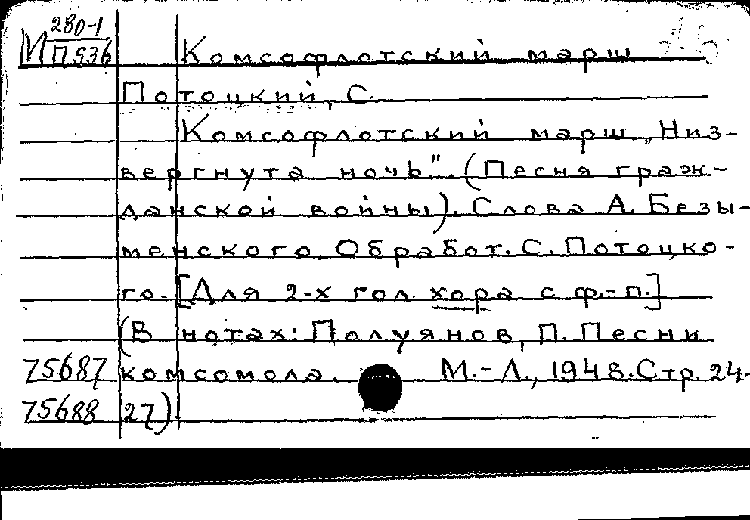 280-1
М П936
Комсофлотский марш
Потоцкий, С.
Комсофлотский марш „Низ-
вергнута ночь". (Песня граж-
данской войны). Слова А. Безы-
менского. Обработ. С. Потоцко-
го. [Для 2-х гол. хора с ф.-п.]
(В нотах: Полуянов, П. Песни
75687 комсомола. М.-Л., 1948. Стр. 24-
75688 27).